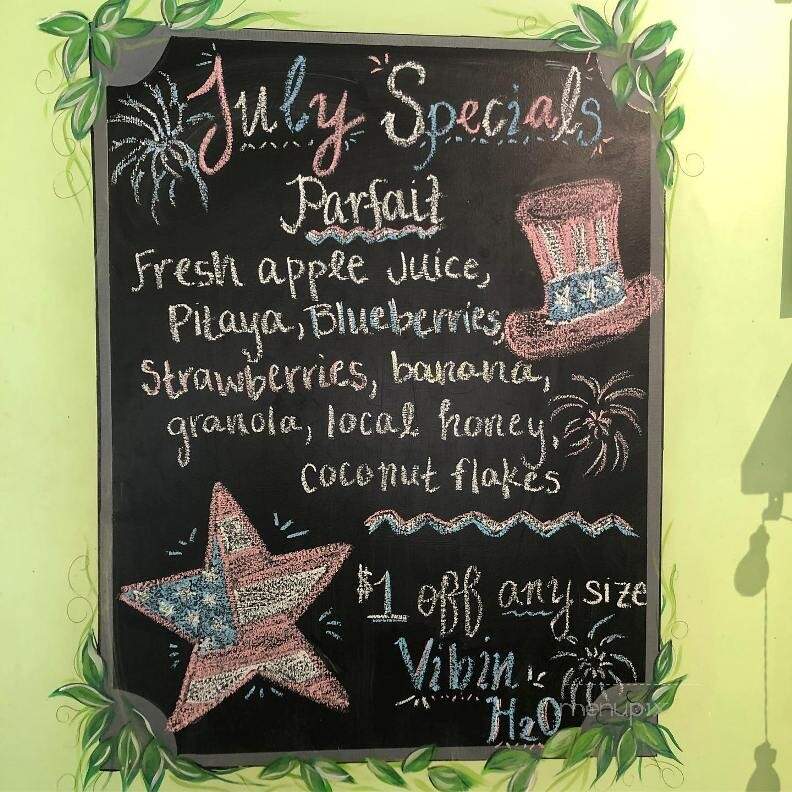 July Specials
Parfait
Fresh apple Juice,
Pitaya, Blueberries,
Strawberries, banana,
granola, local honey,
coconut flakes
$1 off any size
Vibin
H2O
menupix